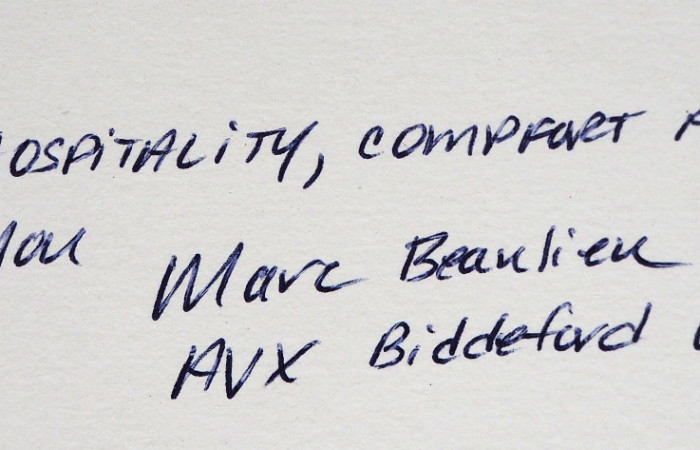 HOSPITALITY, COMPFORT A
You
Marc Beaulieu
AVX Biddeford